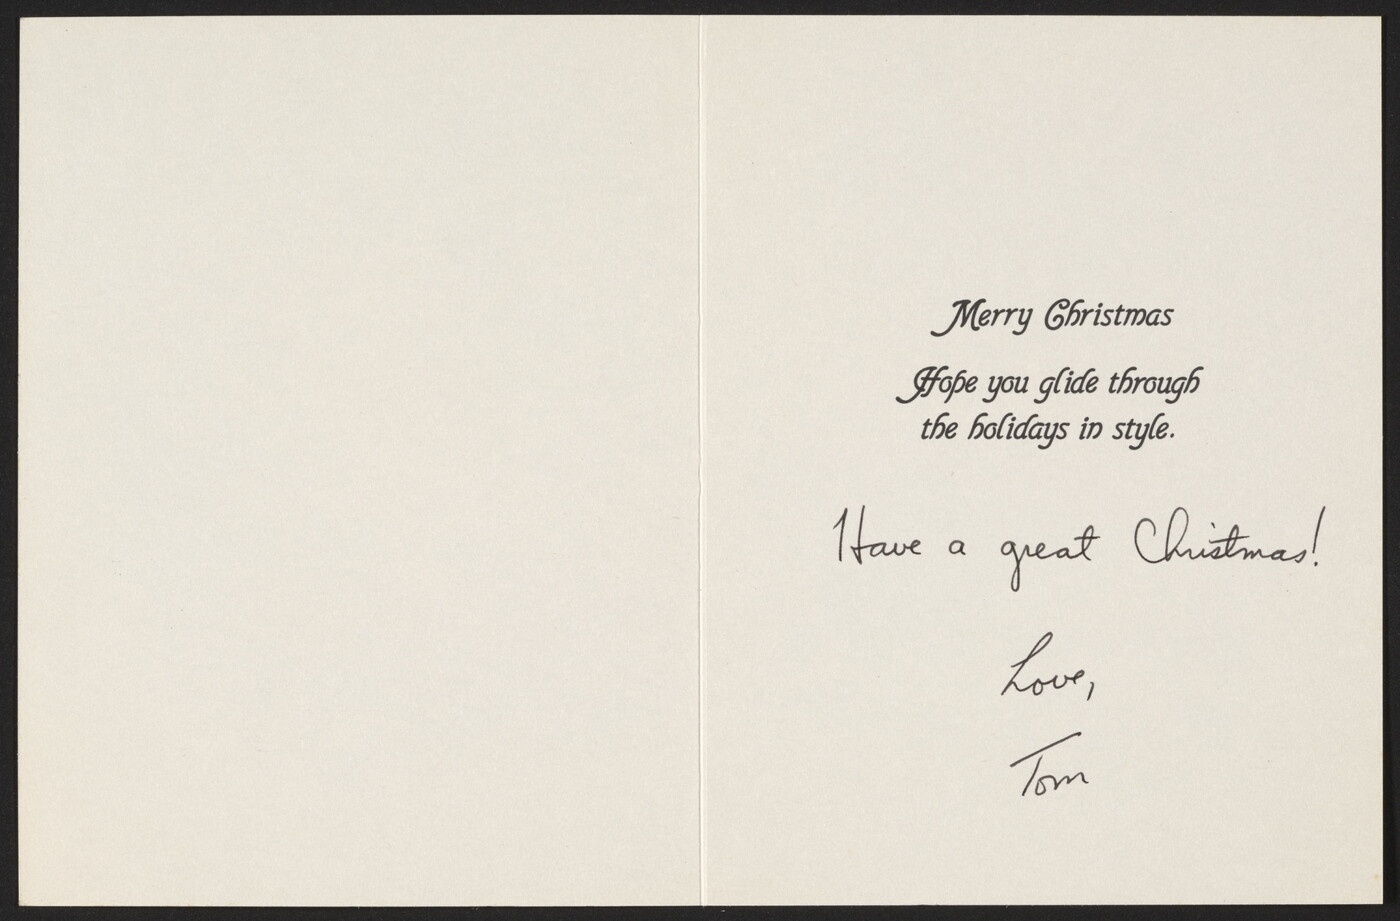 Merry Christmas
Hope you glide through
the holidays in style.
Have a great Christmas!
Love,
Tom